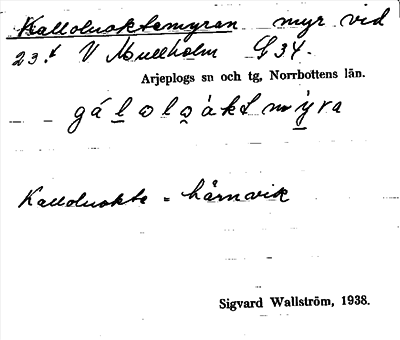 Kalloluoktemyran myr vid
23.t V Mullholm G 34.
Arjeplogs sn och tg, Norrbottens län.
Kalloluokte = hårnvik
Sigvard Wallström, 1938.